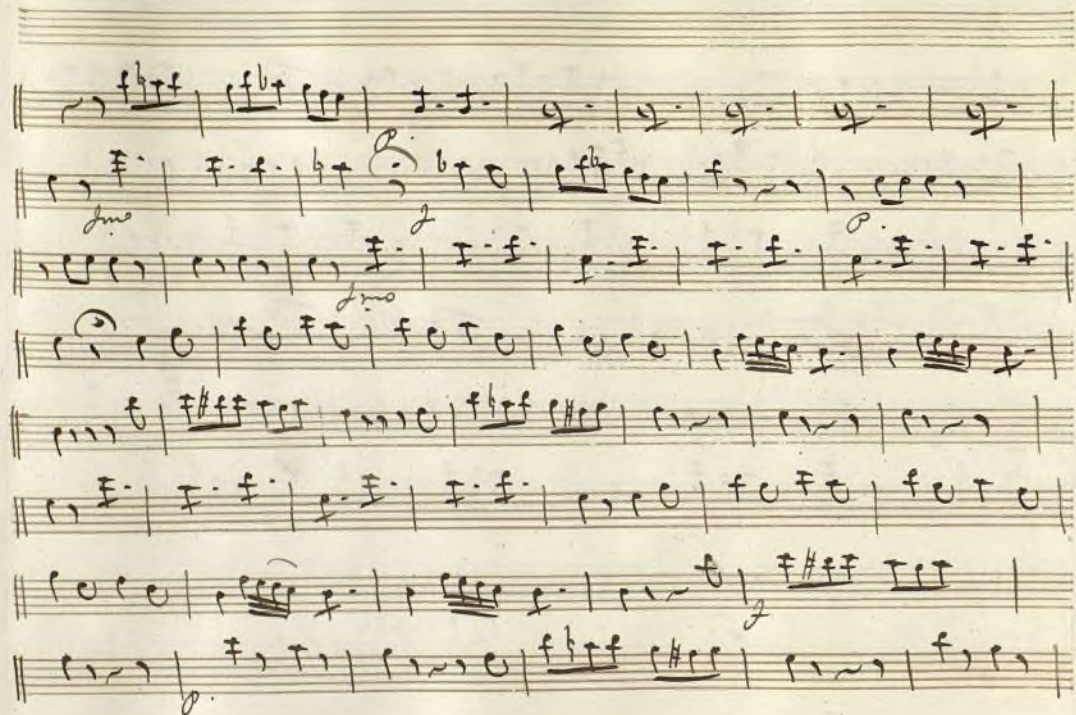 P.
fmo f
P.
fmo
f
P.